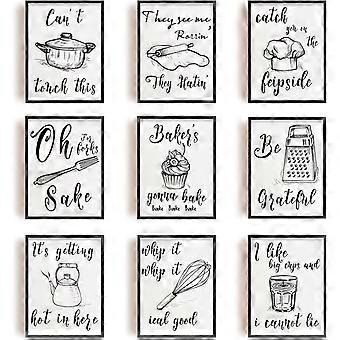 Can't
touch this
They see me
Rollin'
They Hatin'
catch
you on the
feipside
Oh For
forks
Sake
Baker's
gonna bake
Bake Bake Bake
Be
Grateful
It's getting
hot in here
whip it
whip it
ieal good
I like
big cups and
i cannot lie